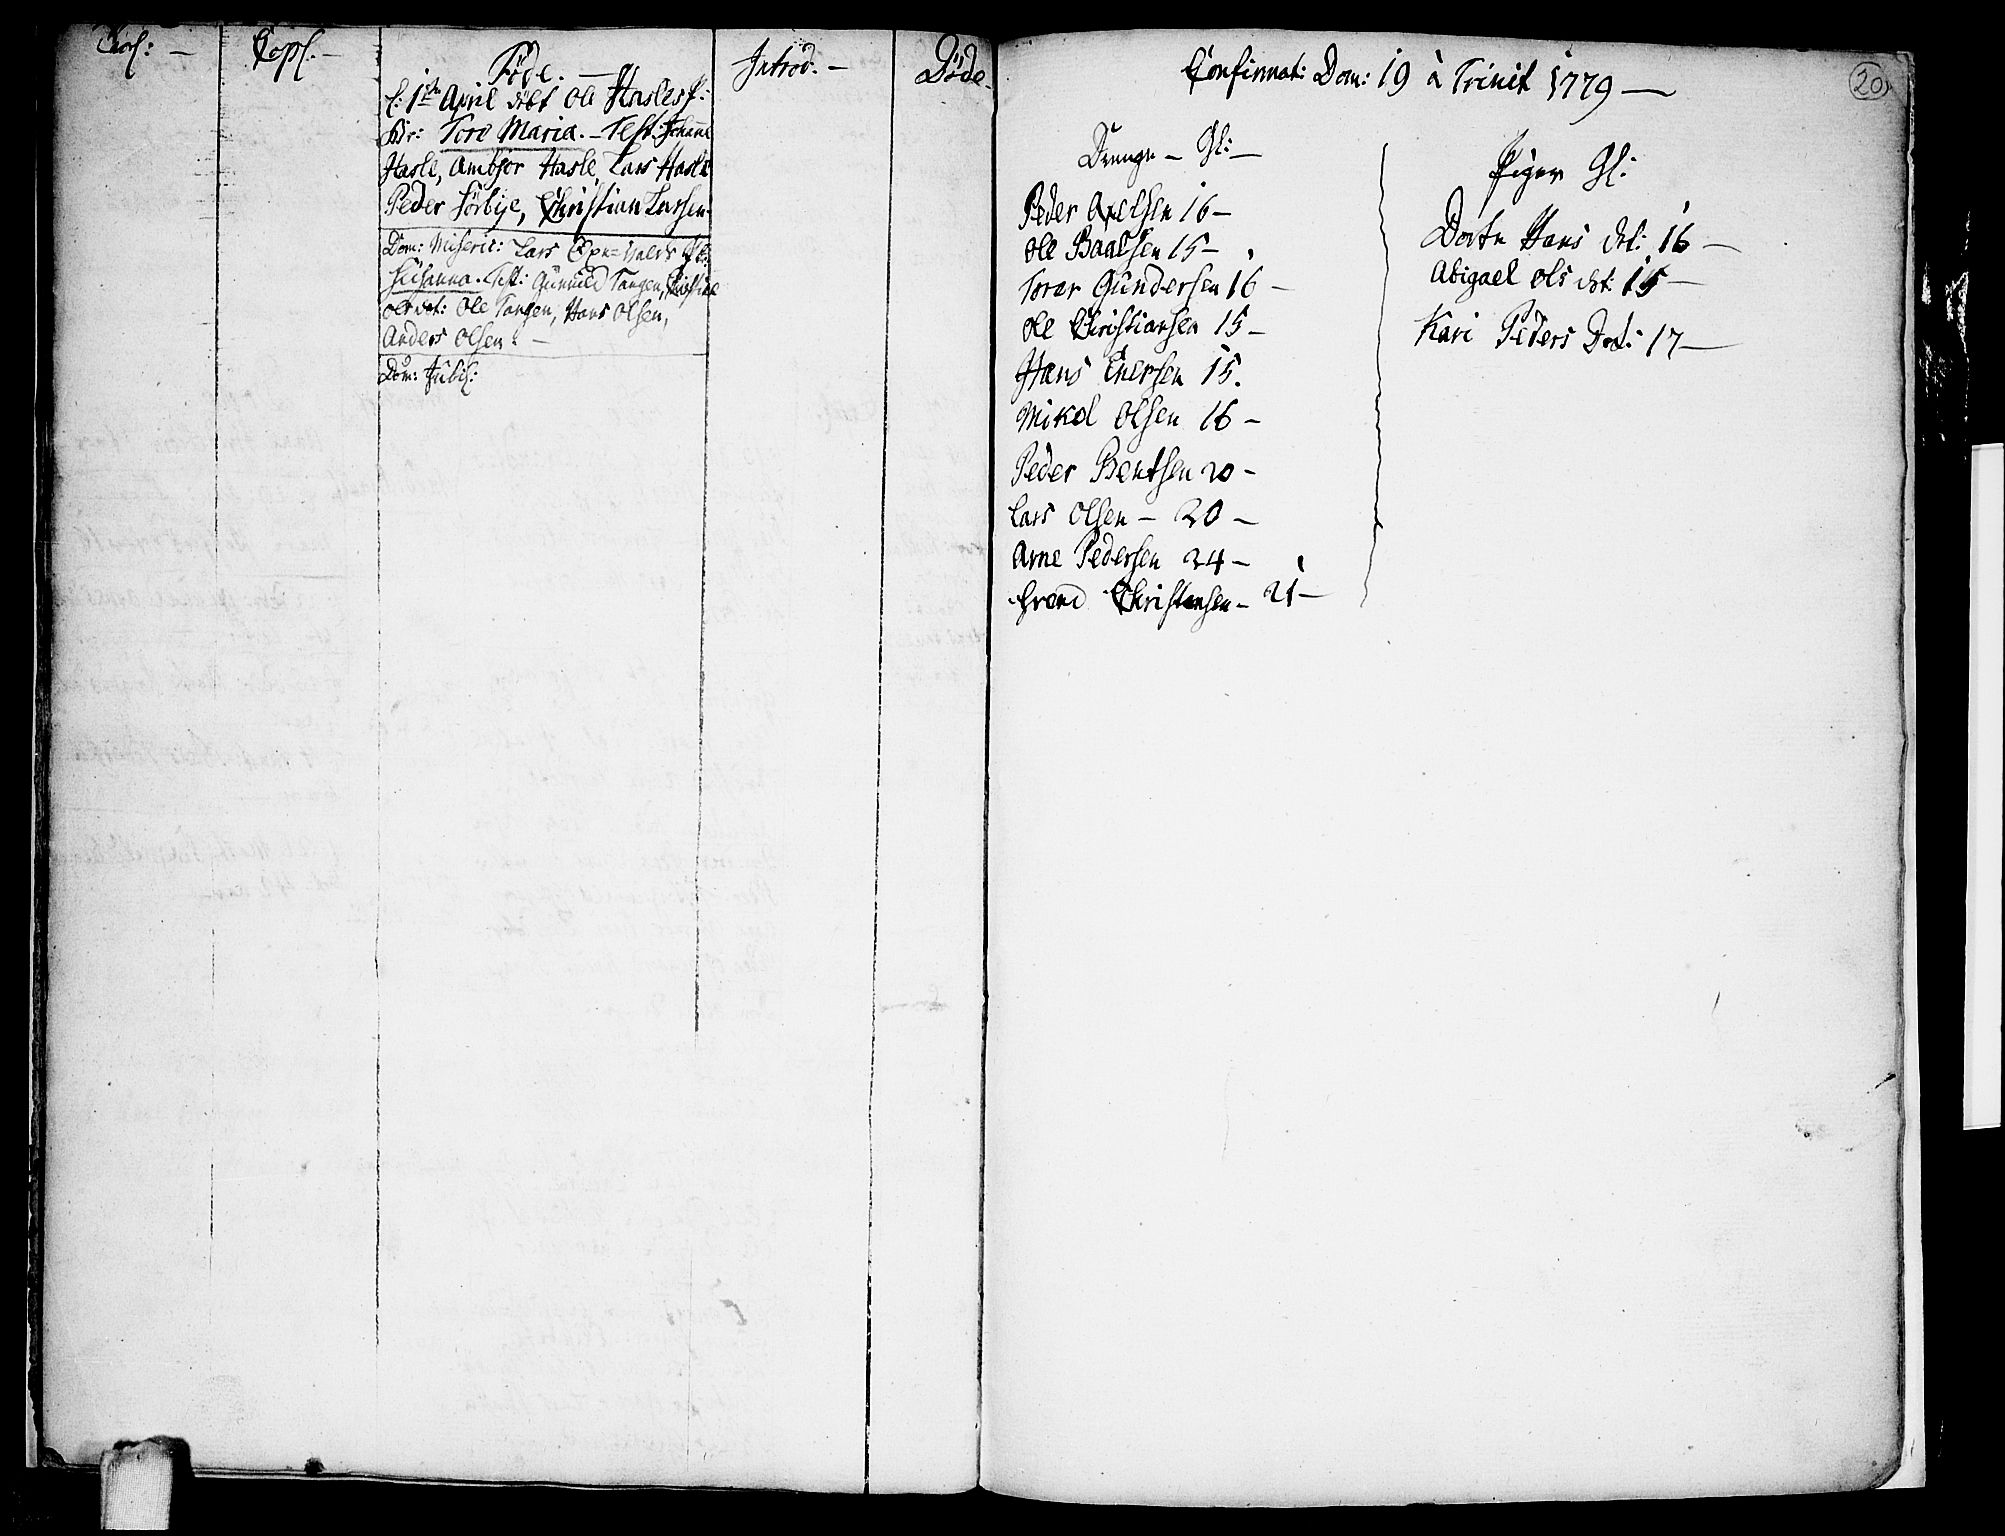 Trol: —
Copl. —
Föde. —
d: 1ste April döbt Ole Hasles P:
Br: Tore Maria. — Test: Johanne
Hasle, Ambjor Hasle, Lars Hasle
Peder Sörbye, Christian Larsen.
Dom: Miseric: Lars
Susanna. Test: Gunnild Tangen,
Ols dot: Ole Tangen, Hans Olsen,
Anders Olsen. —
Dom: Jubil:
Introd. —
Döde.
Confirmat: Dom: 19 à Trinit 1779 —
20
Drenge — Gl: —
Peder Axelsen 16 —
Ole Baalsen 15 —
Torer Gundersen 16 —
Ole Christiansen 15 —
Hans Enersen 15.
Mikel Olsen 16 —
Peder Bentsen 20 —
Lars Olsen — 20 —
Arne Pedersen 24 —
Svend Christensen — 21 —
Piger Gl:
Dorte Hans dot: 16 —
Abigael Ols dot: 15 —
Kari Peders Dot: 17 —